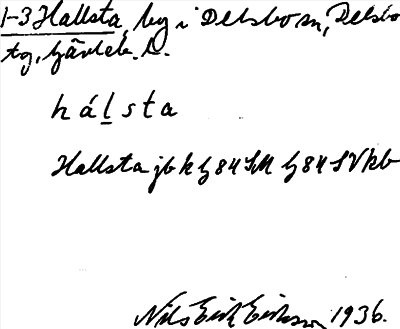 1-3 Hallsta, by i Delsbo sn, Delsbo
tg, Gävleb. l.
hál̲sta
Hallsta jb k h 84 SM h 84 SV kb
Nils Erik Erikson 1936.